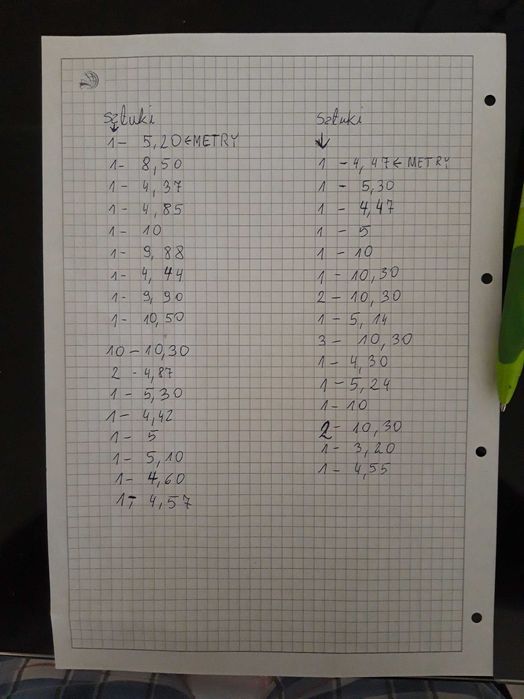 sztuki
1 - 5,20 ← METRY
1 - 8,50
1 - 4,37
1 - 4,85
1 - 10
1 - 9,88
1 - 4,44
1 - 9,90
1 - 10,50
10 - 10,30
2 - 4,87
1 - 5,30
1 - 4,42
1 - 5
1 - 5,10
1 - 4,60
1 - 4,57
sztuki
1 - 4,47 ← METRY
1 - 5,30
1 - 4,47
1 - 5
1 - 10
1 - 10,30
2 - 10,30
1 - 5,14
3 - 10,30
1 - 4,30
1 - 5,24
1 - 10
2 - 10,30
1 - 3,20
1 - 4,55